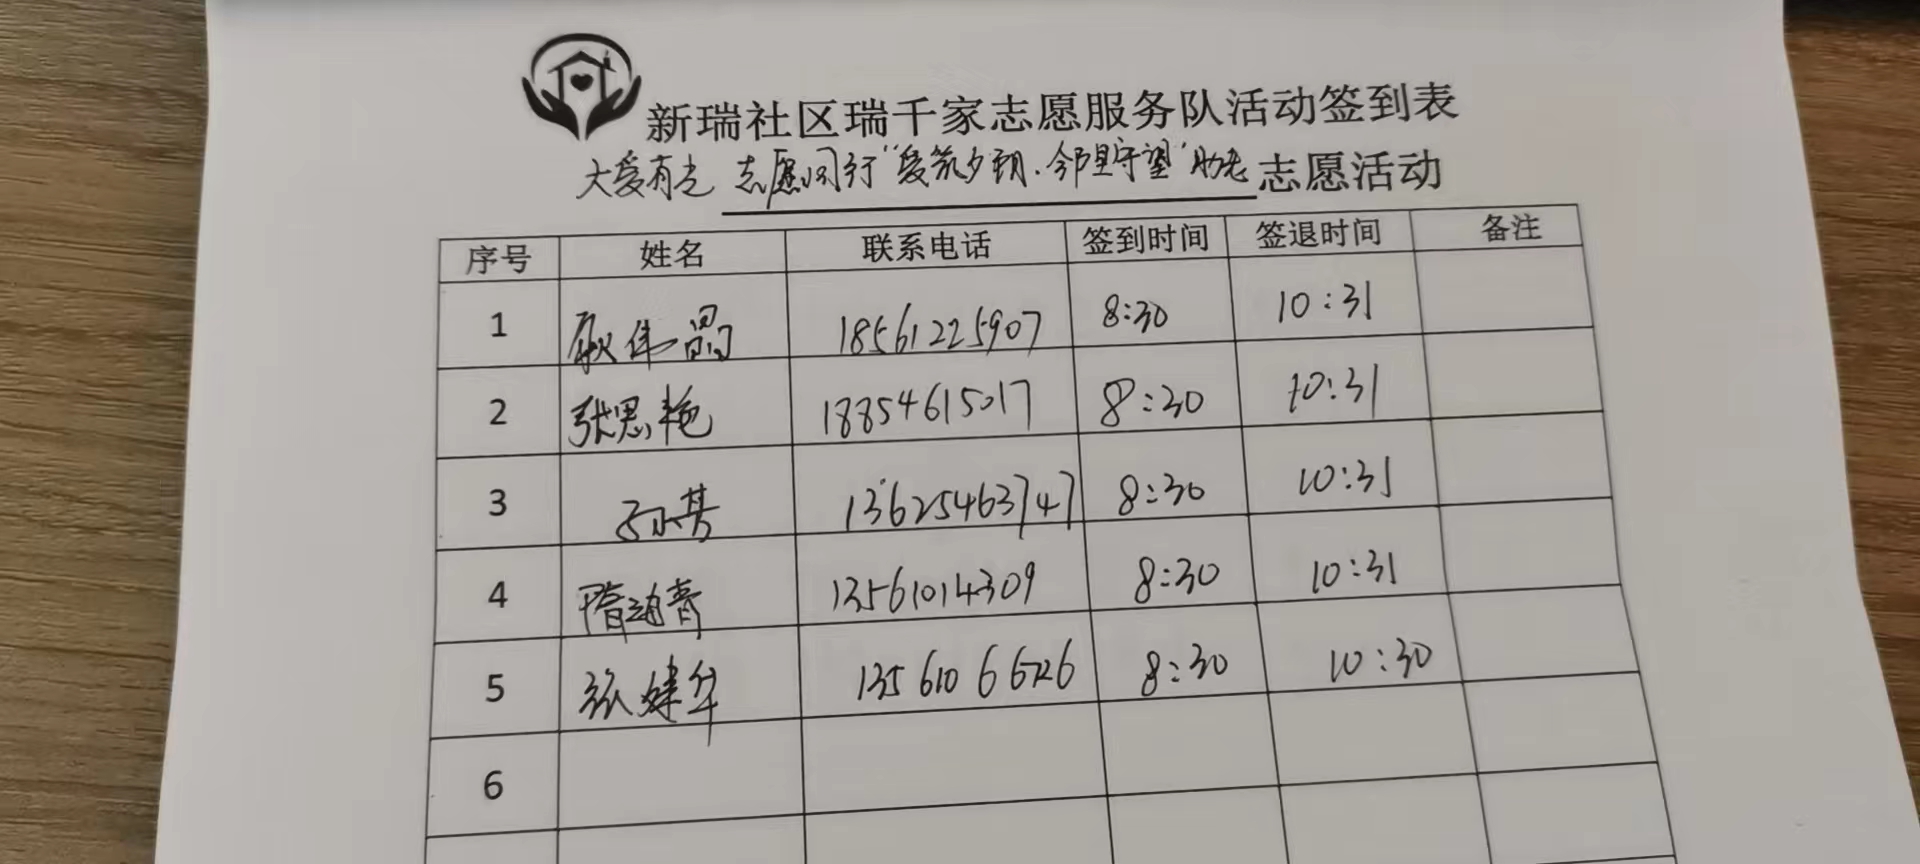 新瑞社区瑞千家志愿服务队活动签到表
大爱有光 志愿同行"爱筑夕朝、邻里守望"助老 志愿活动
序号 姓名 联系电话 签到时间 签退时间 备注
1 耿伟晶 18561225907 8:30 10:31
2 张思艳 18854615017 8:30 10:31
3 孙芳 13625463747 8:30 10:31
4 隋迪青 13561014309 8:30 10:31
5 张建华 8:30 10:30
6